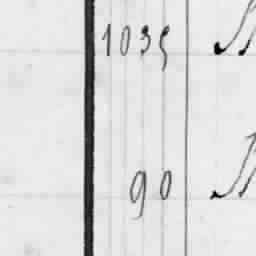 1035
90